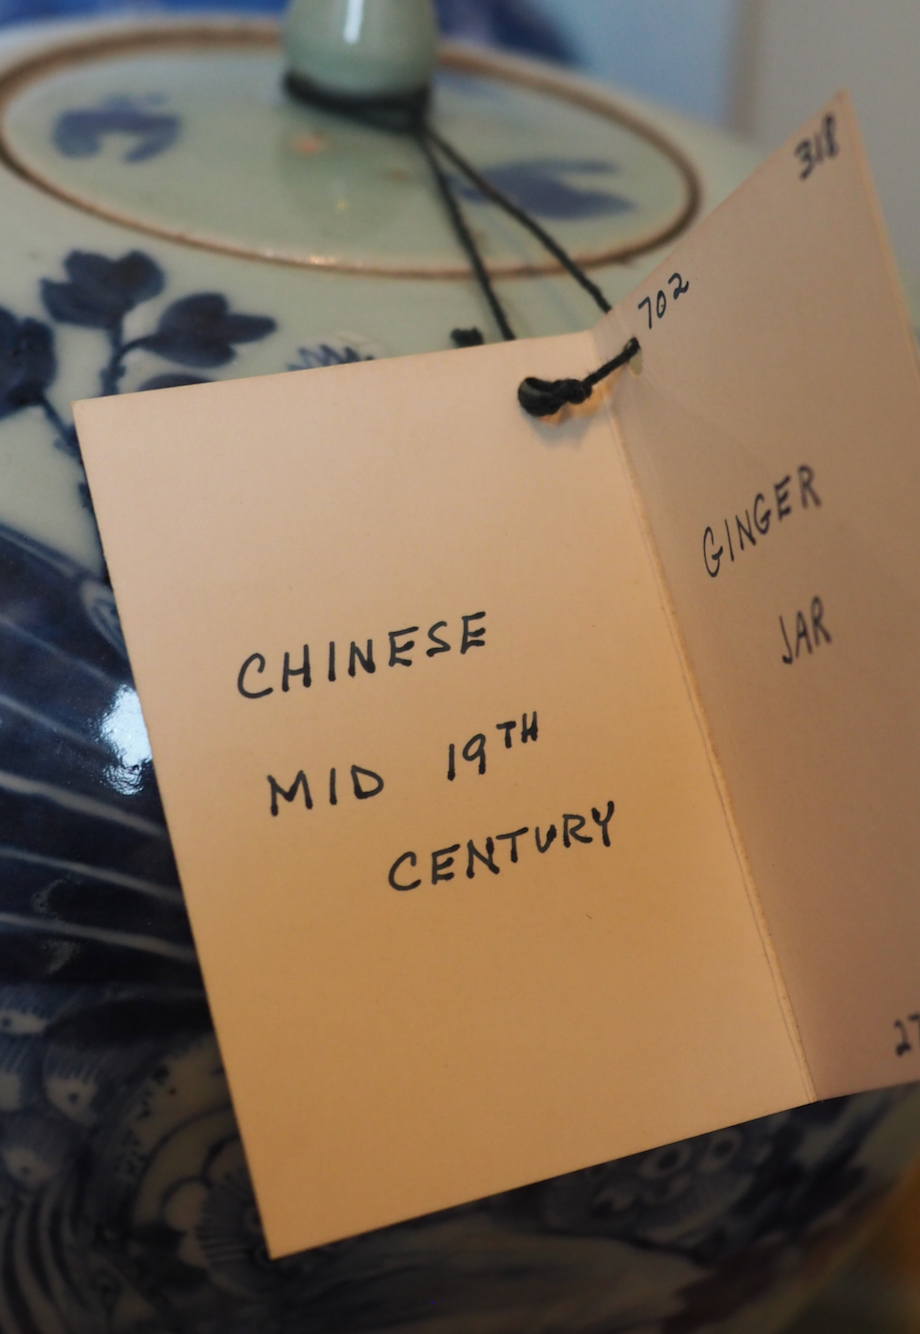 CHINESE
MID 19TH
CENTURY
318
702
GINGER
JAR
27